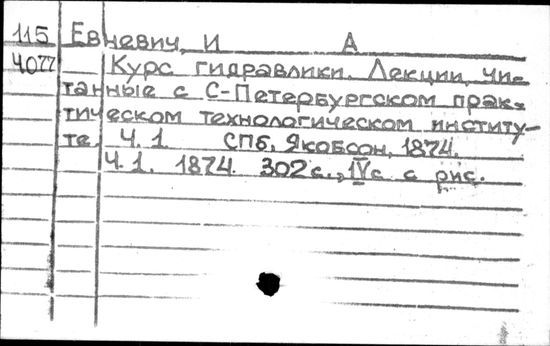 115 Евневич, И А
4077 Курс гидравлики. Лекции, чи-
танные с С-Петербургском прак-
тическом технологическом институ-
те. Ч. 1 СПб, Якобсон, 1874.
Ч. 1. 1874. 302 с., IVс с рис.